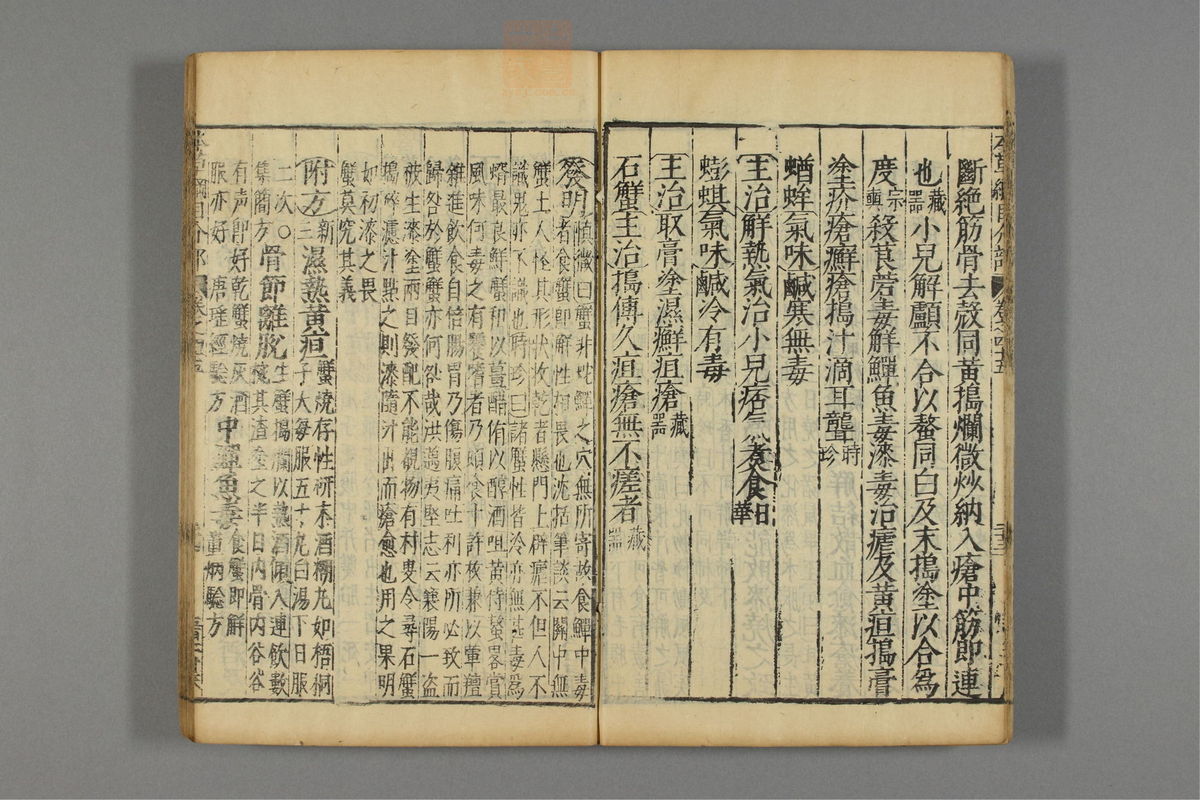 斷絕筋骨去殼同黃搗爛微炒納入瘡中筋即連
也藏器小兒解顱不合以螯同白及末搗塗以合爲
度宗奭殺莨菪毒解鱓魚毒漆毒治瘧及黃疸搗膏
塗疥瘡癬瘡搗汁滴耳聾時珍
蝤蛑氣味鹹寒無毒
主治解熱氣治小兒痞氣煮食日華
蟛蜞氣味鹹冷有毒
主治取膏塗濕癬疽瘡藏器
石蟹主治搗傅久疽瘡無不瘥者藏器
發明慎微曰蟹非蛇鱓之穴無所寄故食鱓中毒
者食蟹即解性相畏也沈括筆談云關中無
蟹土人怪其形狀收乾者懸門上辟瘧不但人不
識鬼亦不識也時珍曰諸蟹性皆冷亦無甚毒爲
蝑最良鮮蟹和以薑醋侑以醇酒咀黃持螯畧賞
風味何毒之有饕嗜者乃頓食十許枚兼以葷羶
雜進飲食自倍腸胃乃傷腹痛吐利亦所必致而
歸咎於蟹蟹亦何咎哉洪邁夷堅志云襄陽一盜
被生漆塗兩目發配不能覩物有村叟令尋石蟹
搗碎濾汁點之則漆隨汁出而瘡愈也用之果明
如初漆之畏
蟹莫究其義
附方新三濕熱黃疸蟹燒存性研末酒糊丸如梧桐
子大每服五十丸白湯下日服
二次〇集簡方骨節離脫生蟹搗爛以熱酒傾入連飲數
盌其渣塗之半日內骨內谷谷
有声即好乾蟹燒灰酒
服亦好唐瑶經驗方中鱓魚毒食蟹即解
董炳驗方